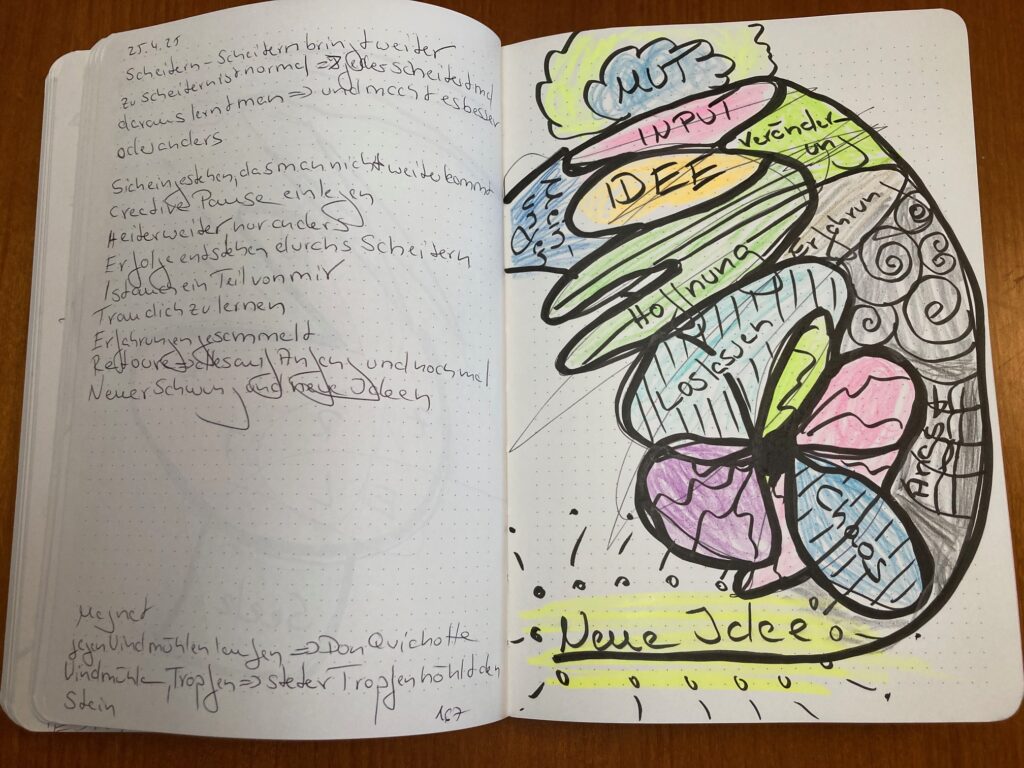 25.4.21
Scheitern - Scheitern bringt weiter
zu scheitern ist normal => jeder scheitert mal
daraus lernt man => und macht es besser
oder anders
Sich eingestehen, das man nicht weiter kommt
creative Pause einlegen
Heiter weiter nur anders
Erfolge entstehen durch's Scheitern
Ist auch ein Teil von mir
Trau dich zu lernen
Erfahrungen gesammelt
Retoure => alles auf Anfang und nochmal
Neuer Schwung und neue Ideen
Magnet
gegen Windmühlen laufen => Don Quichotte
Windmühle, Tropfen => steter Tropfen höhlt den
Stein
167
MUT
INPUT
Veränder-
ung
IDEE
Erfahrung
Hoffnung
Loslassen
Angst
Chaos
Neue Idee